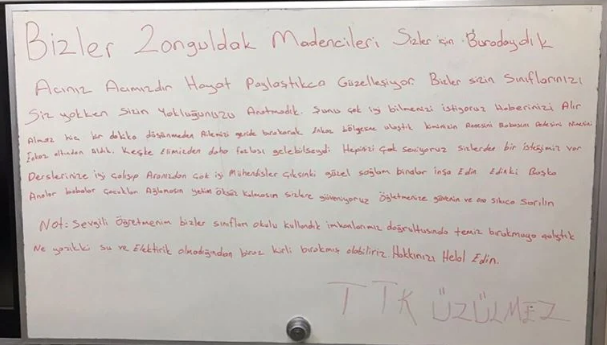 Bizler Zonguldak Madencileri Sizler için Buradaydık
Acınız Acımızdır Hayat Paylaştıkca Güzelleşiyor Bizler sizin Sınıflarınızı
Siz yokken Sizin Yokluğunuzu Aratmadık. Şunu çok iyi bilmenizi istiyoruz Haberinizi Alır
Almaz hiç bir dakka düşünmeden Ailemizi geride bırakarak. bölgesine ulaştık kiminizin Annesini Babasını Dedesini Ninesini
altından Aldık. Keşke Elimizden daha fazlası gelebilseydi Hepinizi Çok Seviyoruz sizlerden bir isteğimiz var
Derslerinize iyi çalışıp Aranızdan çok iyi Mühendisler çıksınki güzel sağlam binalar inşa Edin Edinki Başka
Analar babalar Çocuklar Ağlamasın yetim öksüz kalmasın sizlere güveniyoruz Öğretmenize güvenin ve ona sıkıca Sarılın
Not: Sevgili Öğretmenim bizler sınıfları okulu kullandık imkanlarımız doğrultusunda temiz bırakmaya çalıştık
Ne yazıkki su ve Elektirik olmadığından biraz kirli bırakmış olabiliriz Hakkınızı Helal Edin.
TTK ÜZÜLMEZ